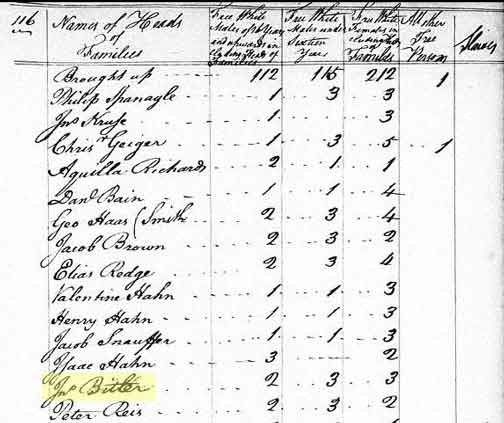 116 Names of Heads of Families Free White Males of 16 Years and upwards including Heads of Families Free White Males under Sixteen Years Free White Females including Heads of Families All other Free Persons Slaves
Brought up 112 115 212 1
Philip Spanagle 1 3 3
Jno Kruse 1 3
Chrisr Geiger 1 3 5 1
Aquilla Richards 2 1 1
Danl Bain 1 1 4
Geo Haas (Smith 2 3 4
Jacob Brown 2 3 2
Elias Redge 2 3 4
Valentine Hahn 1 1 3
Henry Hahn 1 1 3
Jacob Snauffer 1 1 3
Isaac Hahn 3 2
Jno Bitler 2 3 3
Peter Reis 2 3 2